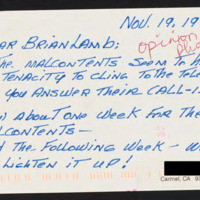 Nov. 19, 19
AR BRIAN LAMB:
opinion
HE MALCONTENTS SEEM TO H
TENACITY TO CLING TO THE TELE
YOU ANSWER THEIR CALL-I
ABOUT ONE WEEK FOR THE
LCONTENTS—
THE FOLLOWING WEEK— W
LIGHTEN IT UP!
Carmel, CA 93